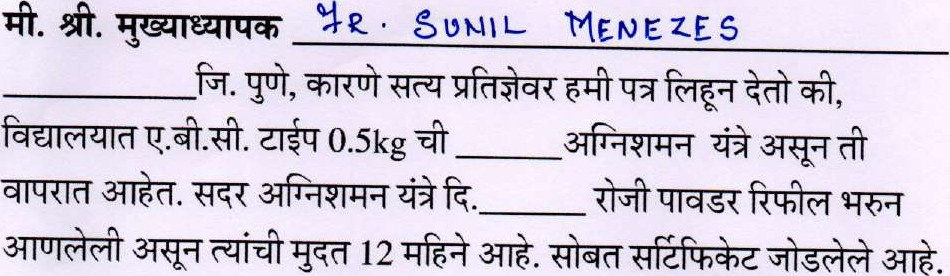 मी. श्री. मुख्याध्यापक Fr. SUNIL MENEZES
__________ जि. पुणे, कारणे सत्य प्रतिज्ञेवर हमी पत्र लिहून देतो की,
विद्यालयात ए.बी.सी. टाईप 0.5kg ची ______ अग्निशमन यंत्रे असून ती
वापरात आहेत. सदर अग्निशमन यंत्रे दि.______ रोजी पावडर रिफील भरुन
आणलेली असून त्यांची मुदत 12 महिने आहे. सोबत सर्टिफिकेट जोडलेले आहे.